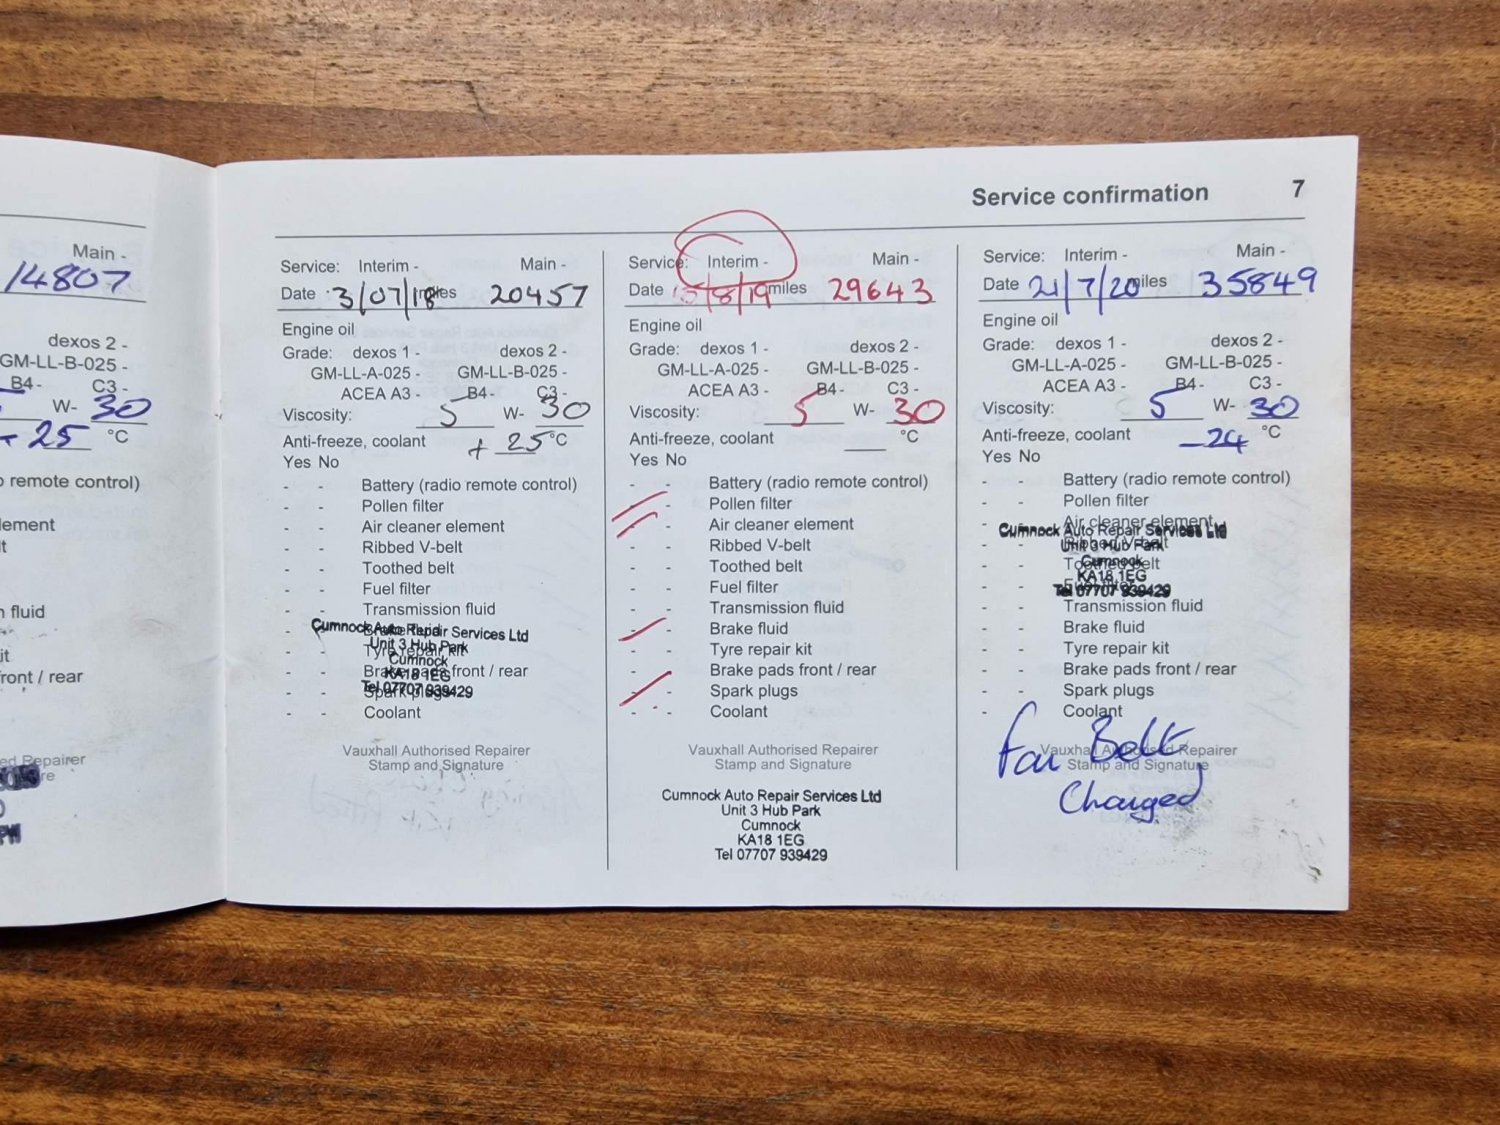 Main -
14807
dexos 2 -
GM-LL-B-025 -
B4- C3 -
W- 30
+ 25 °C
remote control)
n fluid
front / rear
Service confirmation 7
Service: Interim - Main -
Date 3/07/18 miles 20457
Engine oil
Grade: dexos 1 - dexos 2 -
GM-LL-A-025 - GM-LL-B-025 -
ACEA A3 - B4- C3 -
Viscosity: 5 W- 30
Anti-freeze, coolant + 25 °C
Yes No
- - Battery (radio remote control)
- - Pollen filter
- - Air cleaner element
- - Ribbed V-belt
- - Toothed belt
- - Fuel filter
- - Transmission fluid
- Brake fluid
- Tyre repair kit
- Brake pads front / rear
- - Spark plugs
- - Coolant
Cumnock Auto Repair Services Ltd
Unit 3 Hub Park
Cumnock
KA18 1EG
Tel 07707 939429
Vauxhall Authorised Repairer
Stamp and Signature
Service: Interim - Main -
Date 15/8/19 miles 29643
Engine oil
Grade: dexos 1 - dexos 2 -
GM-LL-A-025 - GM-LL-B-025 -
ACEA A3 - B4- C3 -
Viscosity: 5 W- 30
Anti-freeze, coolant °C
Yes No
- - Battery (radio remote control)
- - Pollen filter
- - Air cleaner element
- - Ribbed V-belt
- - Toothed belt
- - Fuel filter
- - Transmission fluid
- - Brake fluid
- - Tyre repair kit
- - Brake pads front / rear
- - Spark plugs
- - Coolant
Vauxhall Authorised Repairer
Stamp and Signature
Cumnock Auto Repair Services Ltd
Unit 3 Hub Park
Cumnock
KA18 1EG
Tel 07707 939429
Service: Interim - Main -
Date 21/7/20 miles 35849
Engine oil
Grade: dexos 1 - dexos 2 -
GM-LL-A-025 - GM-LL-B-025 -
ACEA A3 - B4- C3 -
Viscosity: 5 W- 30
Anti-freeze, coolant -24 °C
Yes No
- - Battery (radio remote control)
- - Pollen filter
- Air cleaner element
- - Ribbed V-belt
- - Toothed belt
- - Fuel filter
- - Transmission fluid
- - Brake fluid
- - Tyre repair kit
- - Brake pads front / rear
- - Spark plugs
- Coolant
Cumnock Auto Repair Services Ltd
Unit 3 Hub Park
Cumnock
KA18 1EG
Tel 07707 939429
Vauxhall Authorised Repairer
Stamp and Signature
Fan Belt
Changed